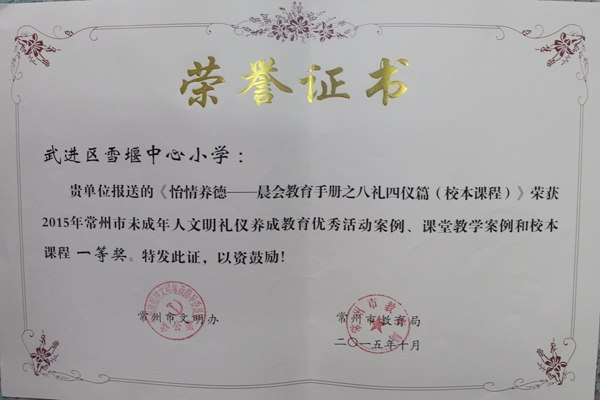 荣誉证书
武进区雪堰中心小学：
贵单位报送的《怡情养德——晨会教育手册之八礼四仪篇（校本课程）》荣获
2015年常州市未成年人文明礼仪养成教育优秀活动案例、课堂教学案例和校本
课程 一等奖。特发此证，以资鼓励！
常州市文明办 常州市教育局
二〇一五年十月